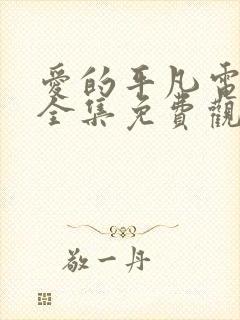 愛的平凡電
全集免費觀
敬一丹